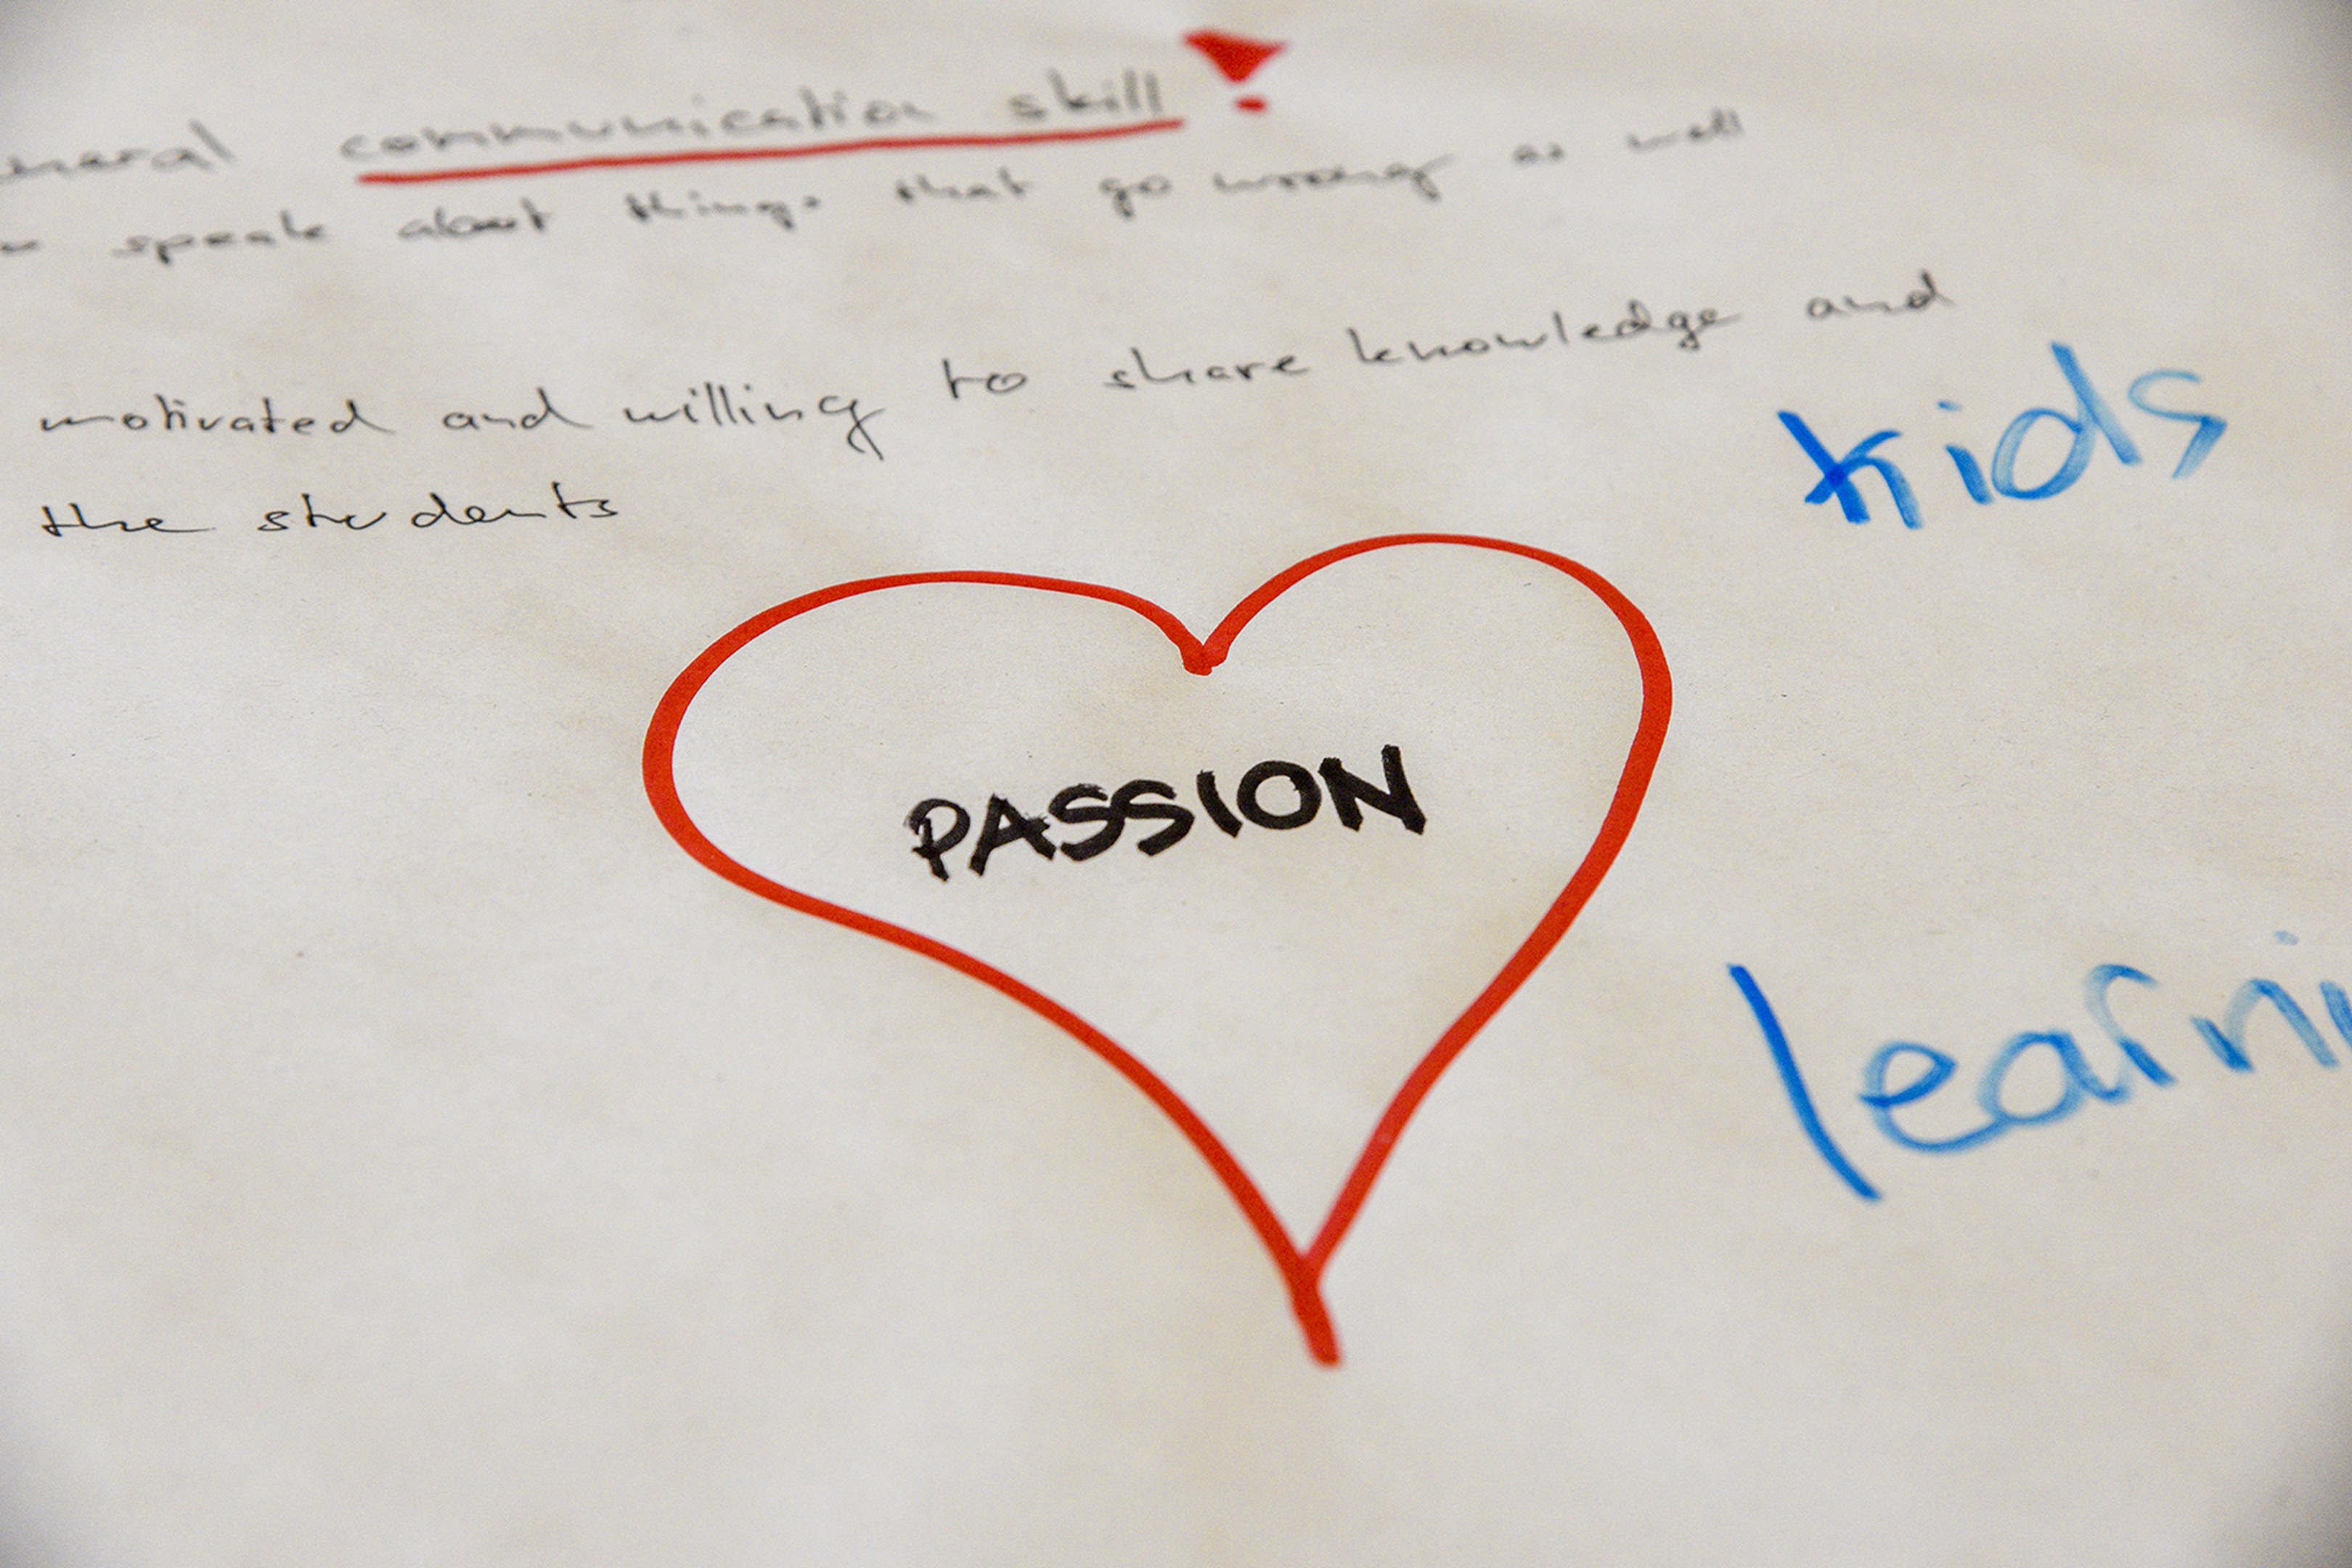 communication skill!
speak about things that go wrong as well
motivated and willing to share knowledge and
the students
kids
PASSION
learni